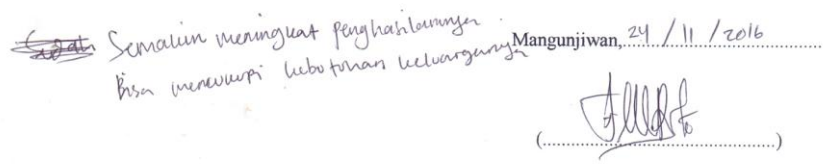 Semakin meningkat penghasilannya.
Bisa mencukupi kebutuhan keluarganya
Mangunjiwan, 24 / 11 / 2016
(..............................)